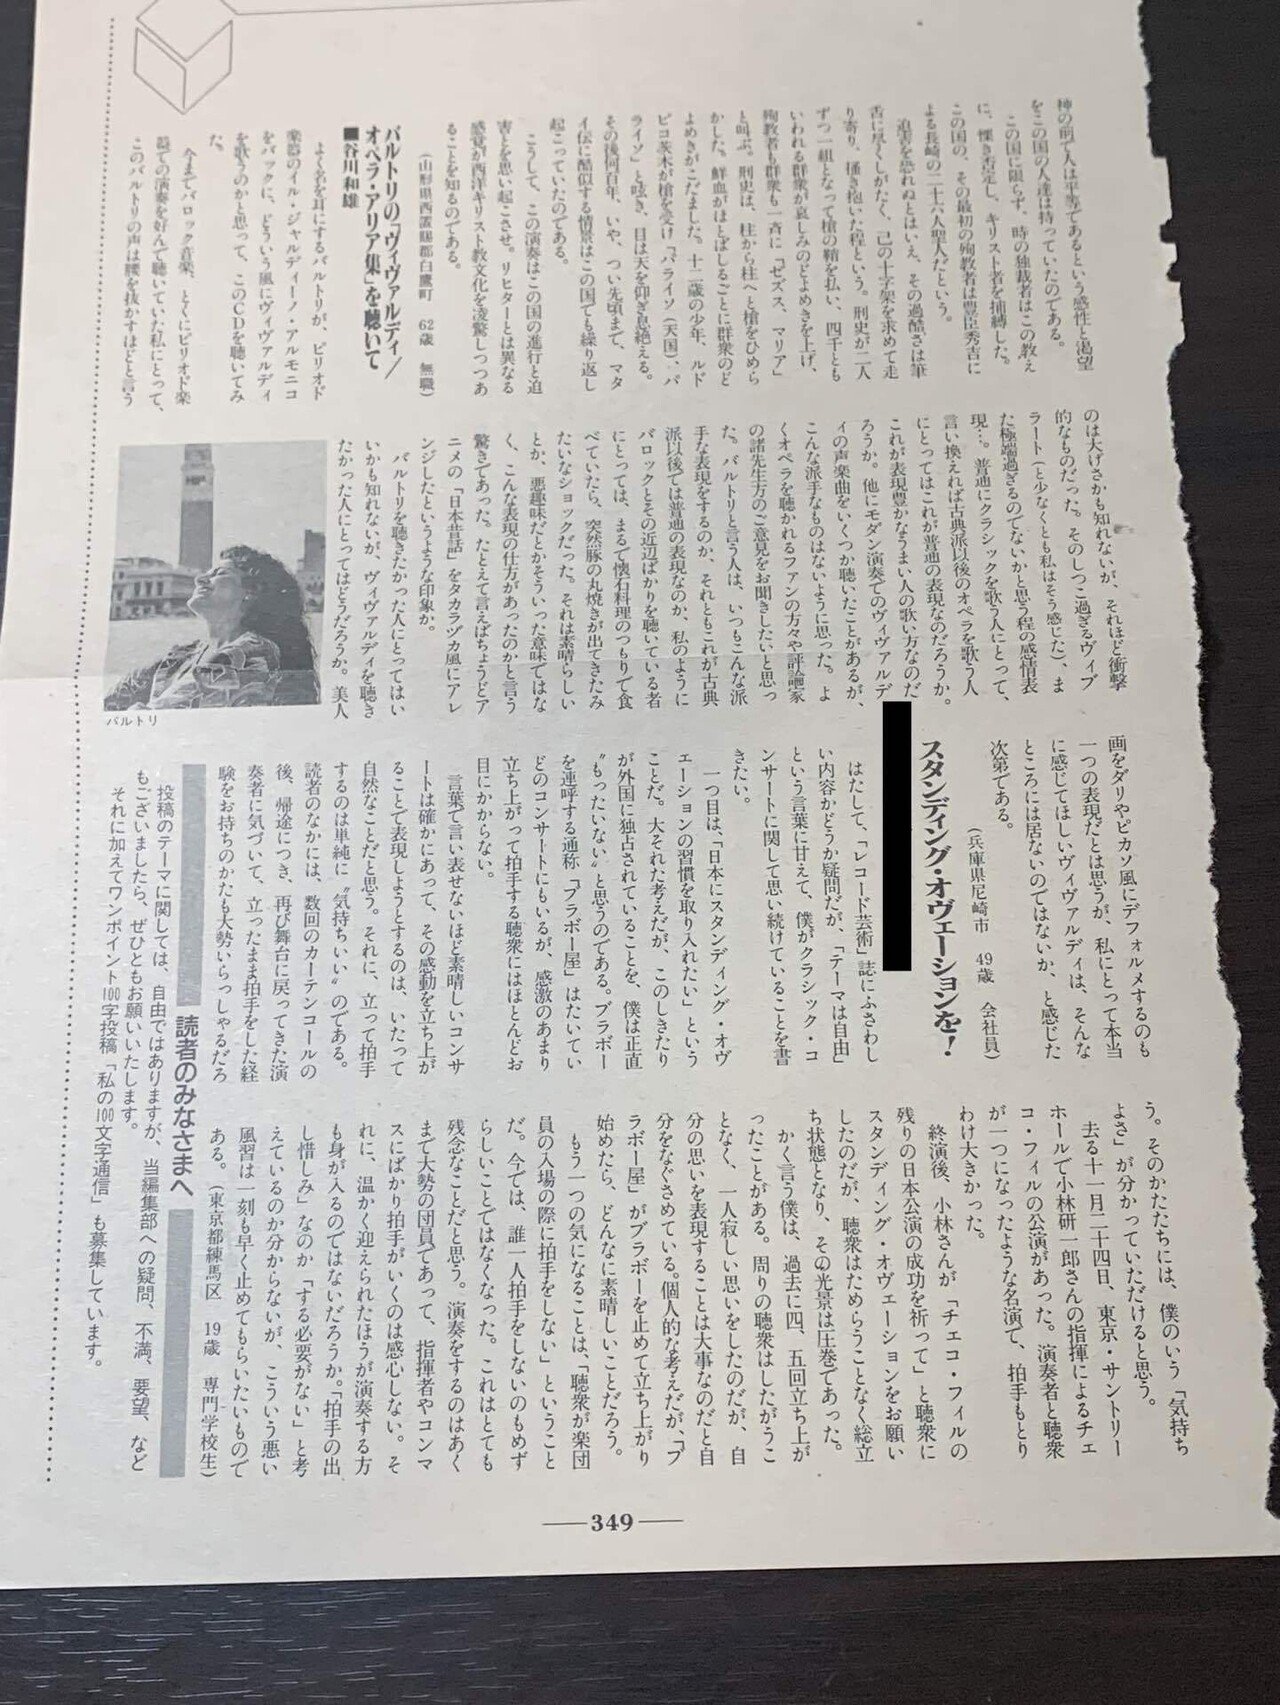 神の前で人は平等であるという感性と渇望
をこの国の人達は持っていたのである。
この国に限らず、時の独裁者はこの教え
に、慄き否定し、キリスト者を捕縛した。
この国の、その最初の殉教者は豊臣秀吉に
よる長崎の二十六人聖人だという。
迫害を恐れぬとはいえ、その過酷さは筆
舌に尽くしがたく、己の十字架を求めて走
り寄り、掻き抱いた程という。刑吏が二人
ずつ一組となって槍の鞘を払い、四千とも
いわれる群衆が哀しみのどよめきを上げ、
殉教者も群衆も一斉に「ゼズス、マリア」
と叫ぶ。刑吏は、柱から柱へと槍をひめら
かした。鮮血がほとばしるごとに群衆のど
よめきがこだました。十二歳の少年、ルド
ビコ茨木が槍を受け「パライソ（天国）、パ
ライソ」と呟き、目は天を仰ぎ息絶える。
その後何百年、いや、つい先頃まで、マタ
イ伝に酷似する情景はこの国でも繰り返し
起こっていたのである。
こうして、この演奏はこの国の進行と迫
害とを思い起こさせ。リヒターとは異なる
感覚が西洋キリスト教文化を凌駕しつつあ
ることを知るのである。
（山形県西置賜郡白鷹町　62歳　無職）
バルトリの「ヴィヴァルディ／
オペラ・アリア集」を聴いて
■谷川和雄
よく名を耳にするバルトリが、ピリオド
楽器のイル・ジャルディーノ・アルモニコ
をバックに、どういう風にヴィヴァルディ
を歌うのかと思って、このCDを聴いてみ
た。
今までバロック音楽、とくにピリオド楽
器での演奏を好んで聴いていた私にとって、
このバルトリの声は腰を抜かすほどと言う
のは大げさかも知れないが、それほど衝撃
的なものだった。そのしつこ過ぎるヴィブ
ラート（と少なくとも私はそう感じた）、ま
た極端過ぎるのでないかと思う程の感情表
現…。普通にクラシックを歌う人にとって、
言い換えれば古典派以後のオペラを歌う人
にとってはこれが普通の表現なのだろうか。
これが表現豊かなうまい人の歌い方なのだ
ろうか。他にモダン演奏でのヴィヴァルデ
ィの声楽曲をいくつか聴いたことがあるが、
こんな派手なものはないように思った。よ
くオペラを聴かれるファンの方々や評論家
の諸先生方のご意見をお聞きしたいと思っ
た。バルトリと言う人は、いつもこんな派
手な表現をするのか、それともこれが古典
派以後では普通の表現なのか、私のように
バロックとその近辺ばかりを聴いている者
にとっては、まるで懐石料理のつもりで食
べていたら、突然豚の丸焼きが出てきたみ
たいなショックだった。それは素晴らしい
とか、悪趣味だとかそういった意味ではな
く、こんな表現の仕方があったのかと言う
驚きであった。たとえて言えばちょうどア
ニメの「日本昔話」をタカラヅカ風にアレ
ンジしたというような印象か。
バルトリを聴きたかった人にとってはい
いかも知れないが、ヴィヴァルディを聴き
たかった人にとってはどうだろうか。美人
バルトリ
画をダリやピカソ風にデフォルメするのも
一つの表現だとは思うが、私にとって本当
に感じてほしいヴィヴァルディは、そんな
ところには居ないのではないか、と感じた
次第である。
（兵庫県尼崎市　49歳　会社員）
スタンディング・オヴェーションを！
はたして、「レコード芸術」誌にふさわし
い内容かどうか疑問だが、「テーマは自由」
という言葉に甘えて、僕がクラシック・コ
ンサートに関して思い続けていることを書
きたい。
一つ目は、「日本にスタンディング・オヴ
ェーションの習慣を取り入れたい」という
ことだ。大それた考えだが、このしきたり
が外国に独占されていることを、僕は正直
〝もったいない〟と思うのである。ブラボー
を連呼する通称「ブラボー屋」はたいてい
どのコンサートにもいるが、感激のあまり
立ち上がって拍手する聴衆にはほとんどお
目にかからない。
言葉で言い表せないほど素晴しいコンサ
ートは確かにあって、その感動を立ち上が
ることで表現しようとするのは、いたって
自然なことだと思う。それに、立って拍手
するのは単純に〝気持ちいい〟のである。
読者のなかには、数回のカーテンコールの
後、帰途につき、再び舞台に戻ってきた演
奏者に気づいて、立ったまま拍手をした経
験をお持ちのかたも大勢いらっしゃるだろ
う。そのかたたちには、僕のいう「気持ち
よさ」が分かっていただけると思う。
去る十一月二十四日、東京・サントリー
ホールで小林研一郎さんの指揮によるチェ
コ・フィルの公演があった。演奏者と聴衆
が一つになったような名演で、拍手もとり
わけ大きかった。
終演後、小林さんが「チェコ・フィルの
残りの日本公演の成功を祈って」と聴衆に
スタンディング・オヴェーションをお願い
したのだが、聴衆はためらうことなく総立
ち状態となり、その光景は圧巻であった。
かく言う僕は、過去に四、五回立ち上が
ったことがある。周りの聴衆はしたがうこ
となく、一人寂しい思いをしたのだが、自
分の思いを表現することは大事なのだと自
分をなぐさめている。個人的な考えだが、「ブ
ラボー屋」がブラボーを止めて立ち上がり
始めたら、どんなに素晴しいことだろう。
もう一つの気になることは、「聴衆が楽団
員の入場の際に拍手をしない」ということ
だ。今では、誰一人拍手をしないのもめず
らしいことではなくなった。これはとても
残念なことだと思う。演奏をするのはあく
まで大勢の団員であって、指揮者やコンマ
スにばかり拍手がいくのは感心しない。そ
れに、温かく迎えられたほうが演奏する方
も身が入るのではないだろうか。「拍手の出
し惜しみ」なのか「する必要がない」と考
えているのか分からないが、こういう悪い
風習は一刻も早く止めてもらいたいもので
ある。（東京都練馬区　19歳　専門学校生）
読者のみなさまへ
投稿のテーマに関しては、自由ではありますが、当編集部への疑問、不満、要望、など
もございましたら、ぜひともお願いいたします。
それに加えてワンポイント100字投稿「私の100文字通信」も募集しています。
349